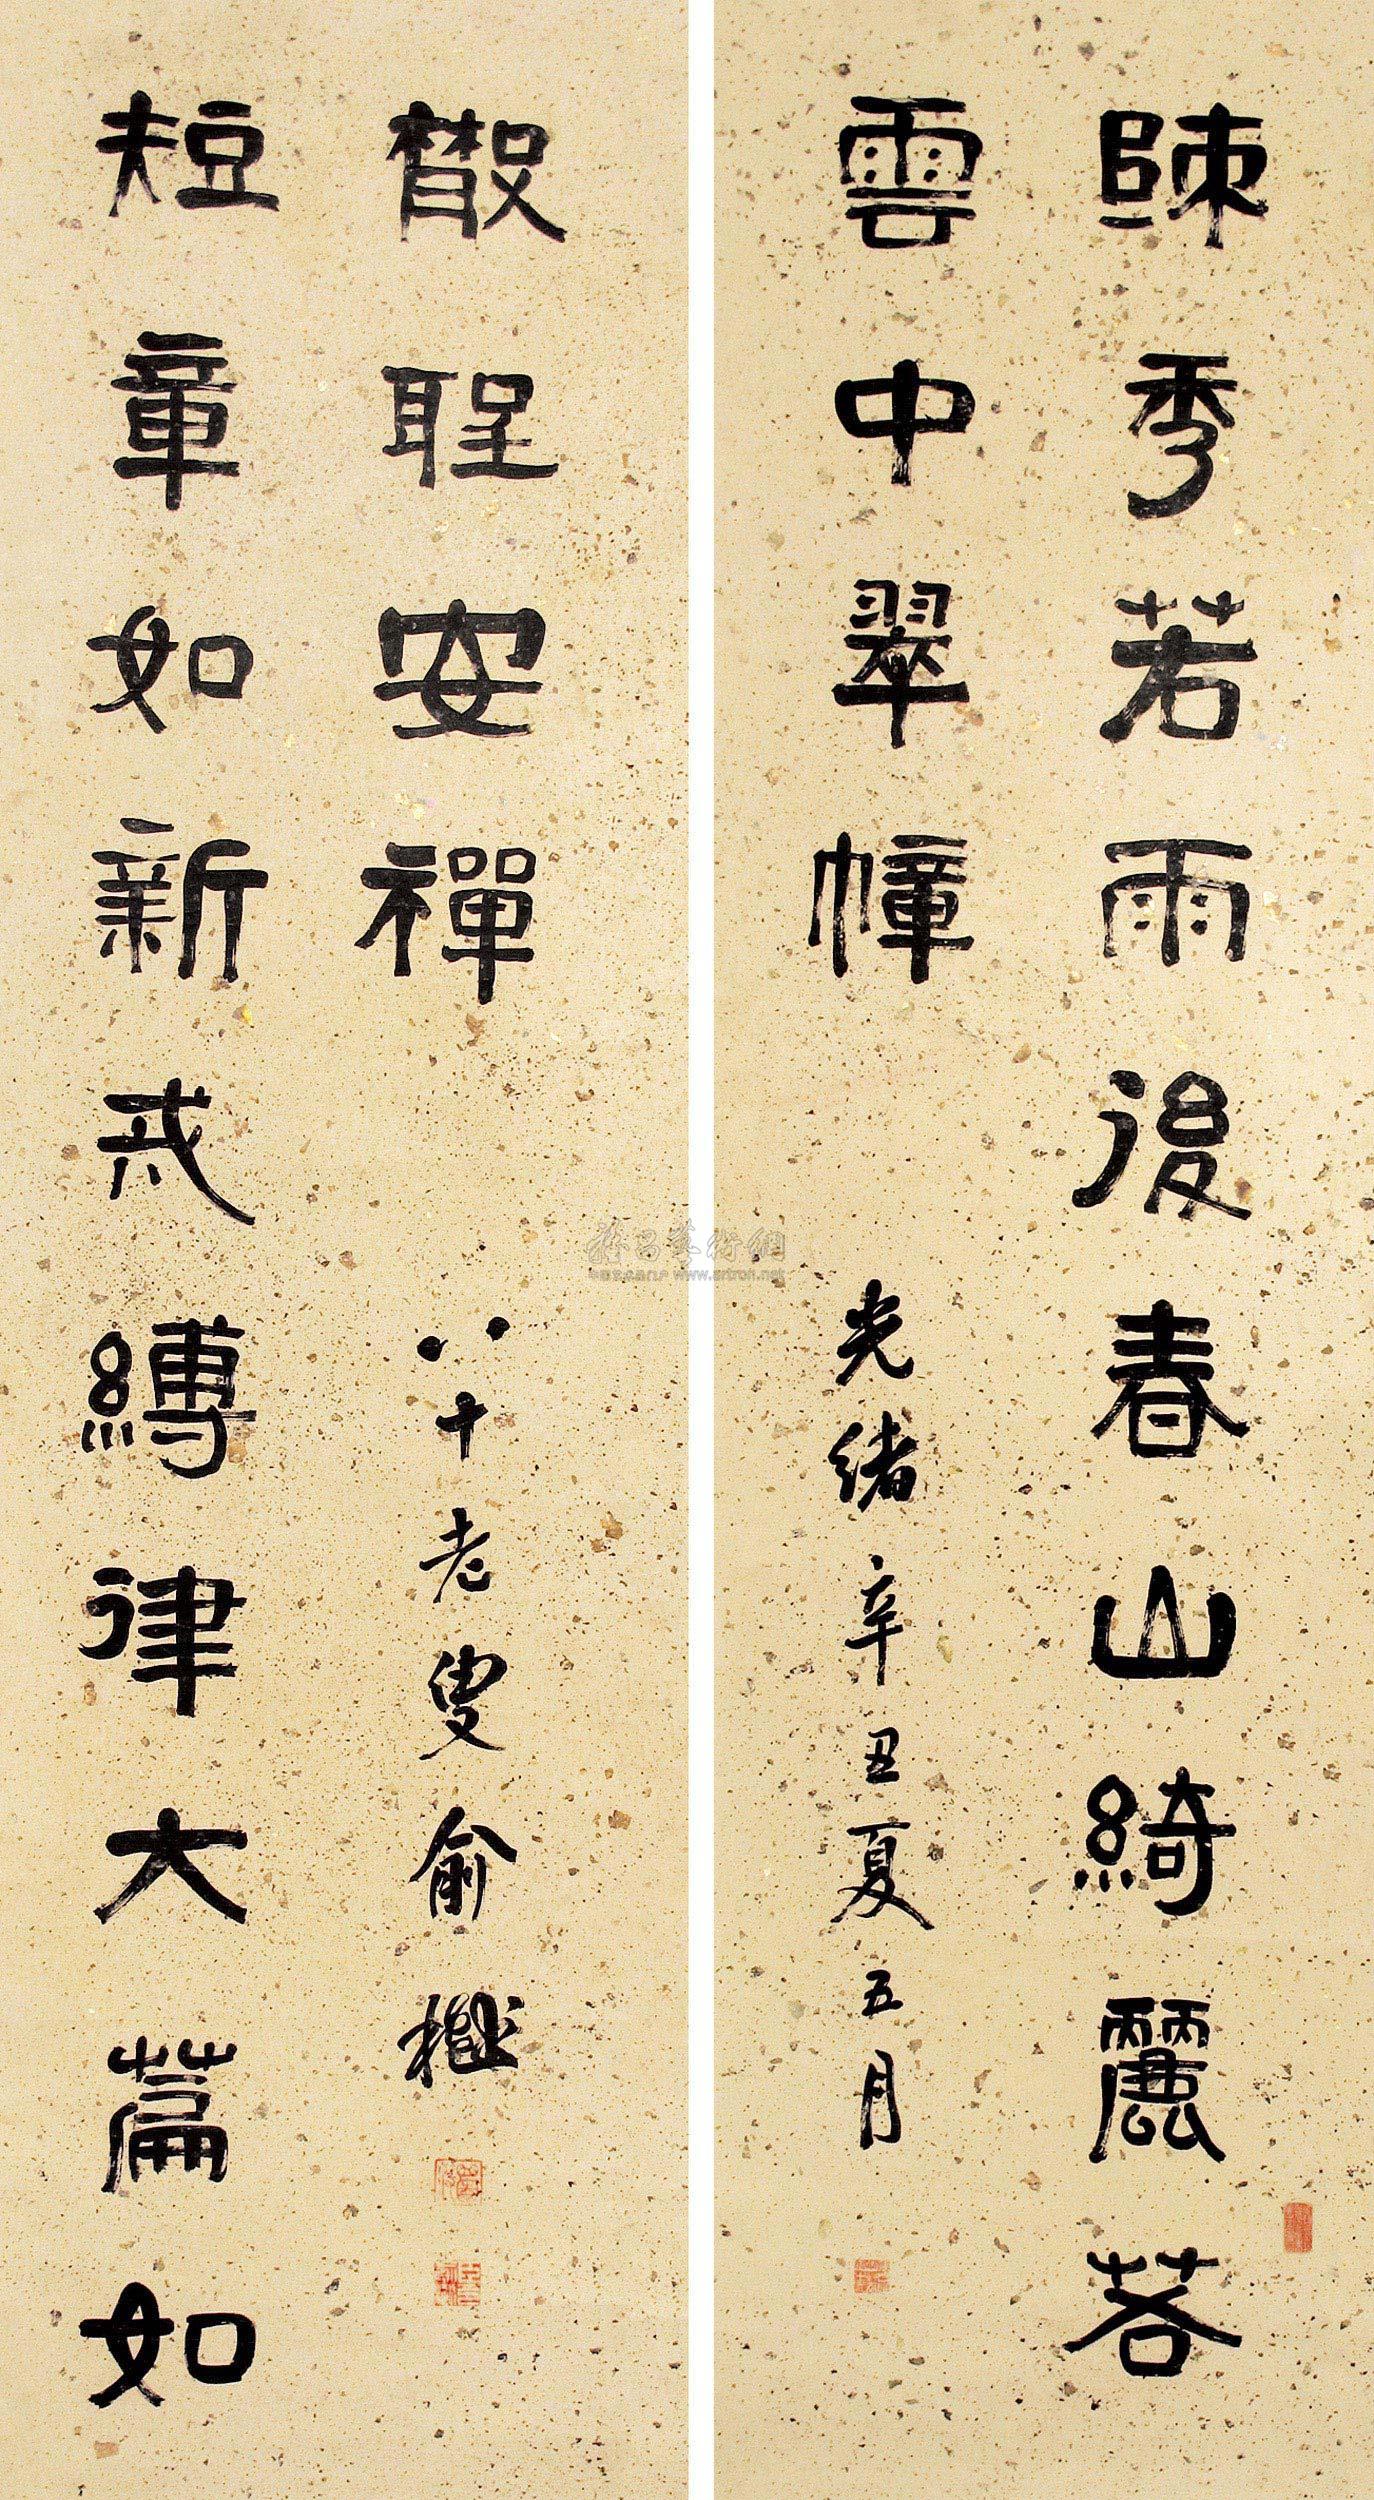 踈秀若雨後春山綺麗若
雲中翠幢
光緒辛丑夏五月
短章如新戒縛律大篇如
散聖安禪
八十老叟俞樾
雅昌藝術網
www.artron.net